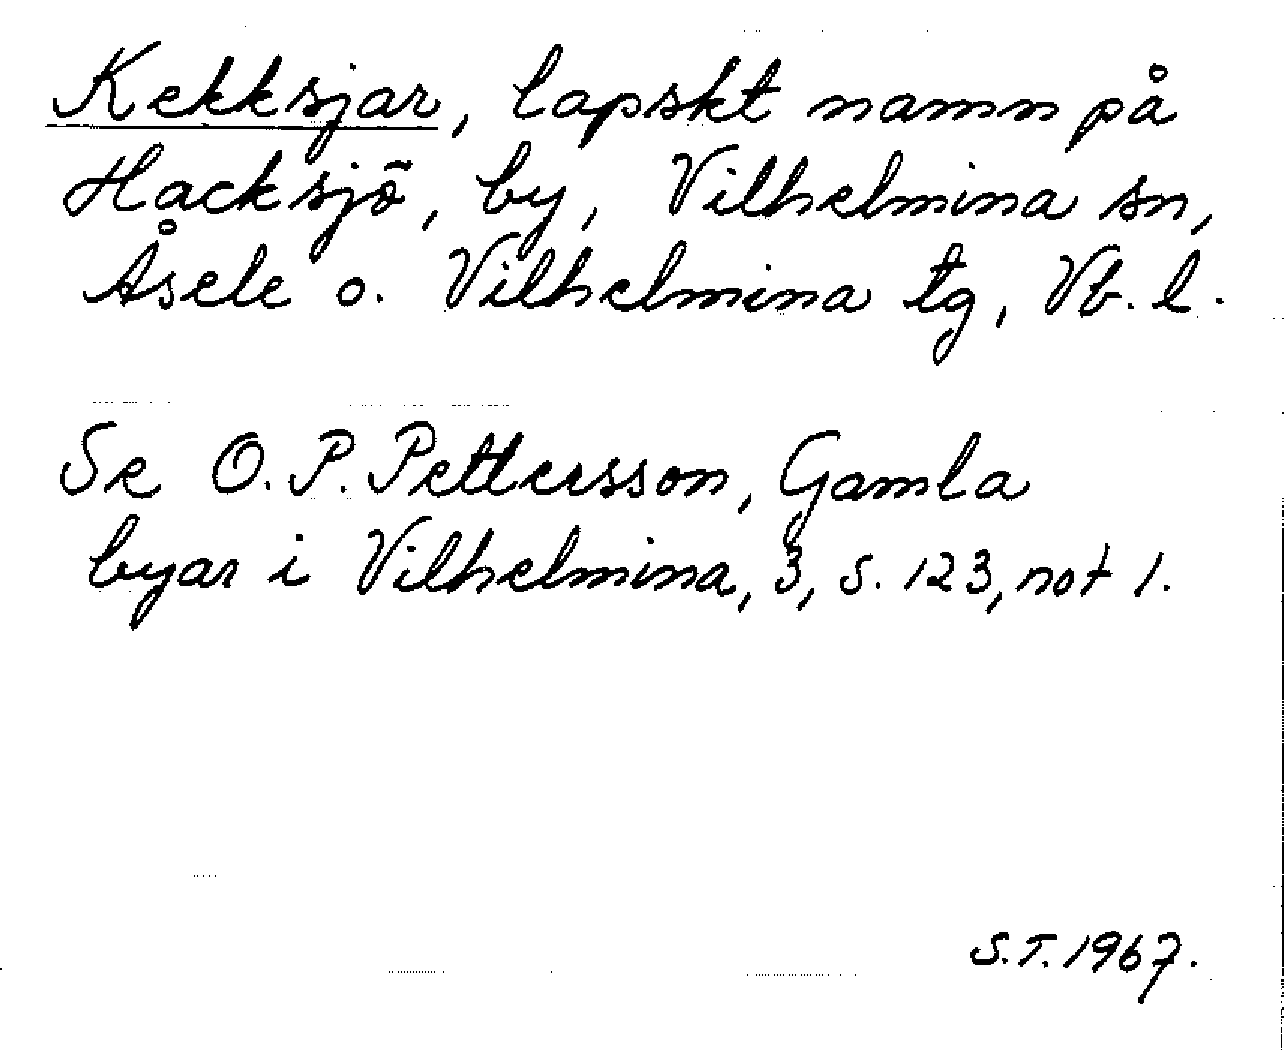 Kekksjar, lapskt namn på
Hacksjö, by, Vilhelmina sn,
Åsele o. Vilhelmina tg, Vb. l.
Se O. P. Pettersson, Gamla
byar i Vilhelmina, 3, s. 123, not 1.
S.T. 1967.